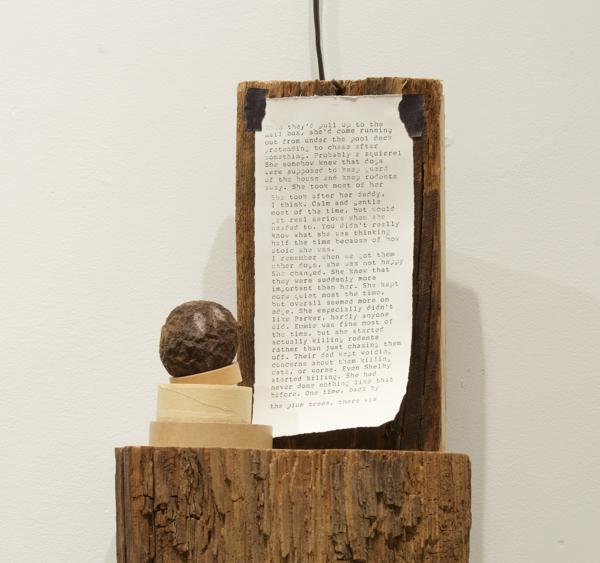 they'd pull up to the
mail box, she'd come running
out from under the pool deck
pretending to chase after
something. Probably a squirrel
She somehow knew that dogs
were supposed to keep guard
of the house and keep rodents
away. She took most of her
She took after her daddy,
I think. Calm and gentle
most of the time, but would
get real serious when she
needed to. You didn't really
know what she was thinking
half the time because of how
stoic she was.
I remember when we got them
other dogs, she was not happy
She changed. She knew that
they were suddenly more
important than her. She kept
more quiet most the time,
but overall seemed more on
edge. She especially didn't
like Parker, hardly anyone
did. Emmie was fine most of
the time, but she started
actually killing rodents
rather than just chasing them
off. Their dad kept voicing
concerns about them killing
cats, or worse. Even Shelby
started killing. She had
never done nothing like that
before. One time, back by
the plum trees, there was